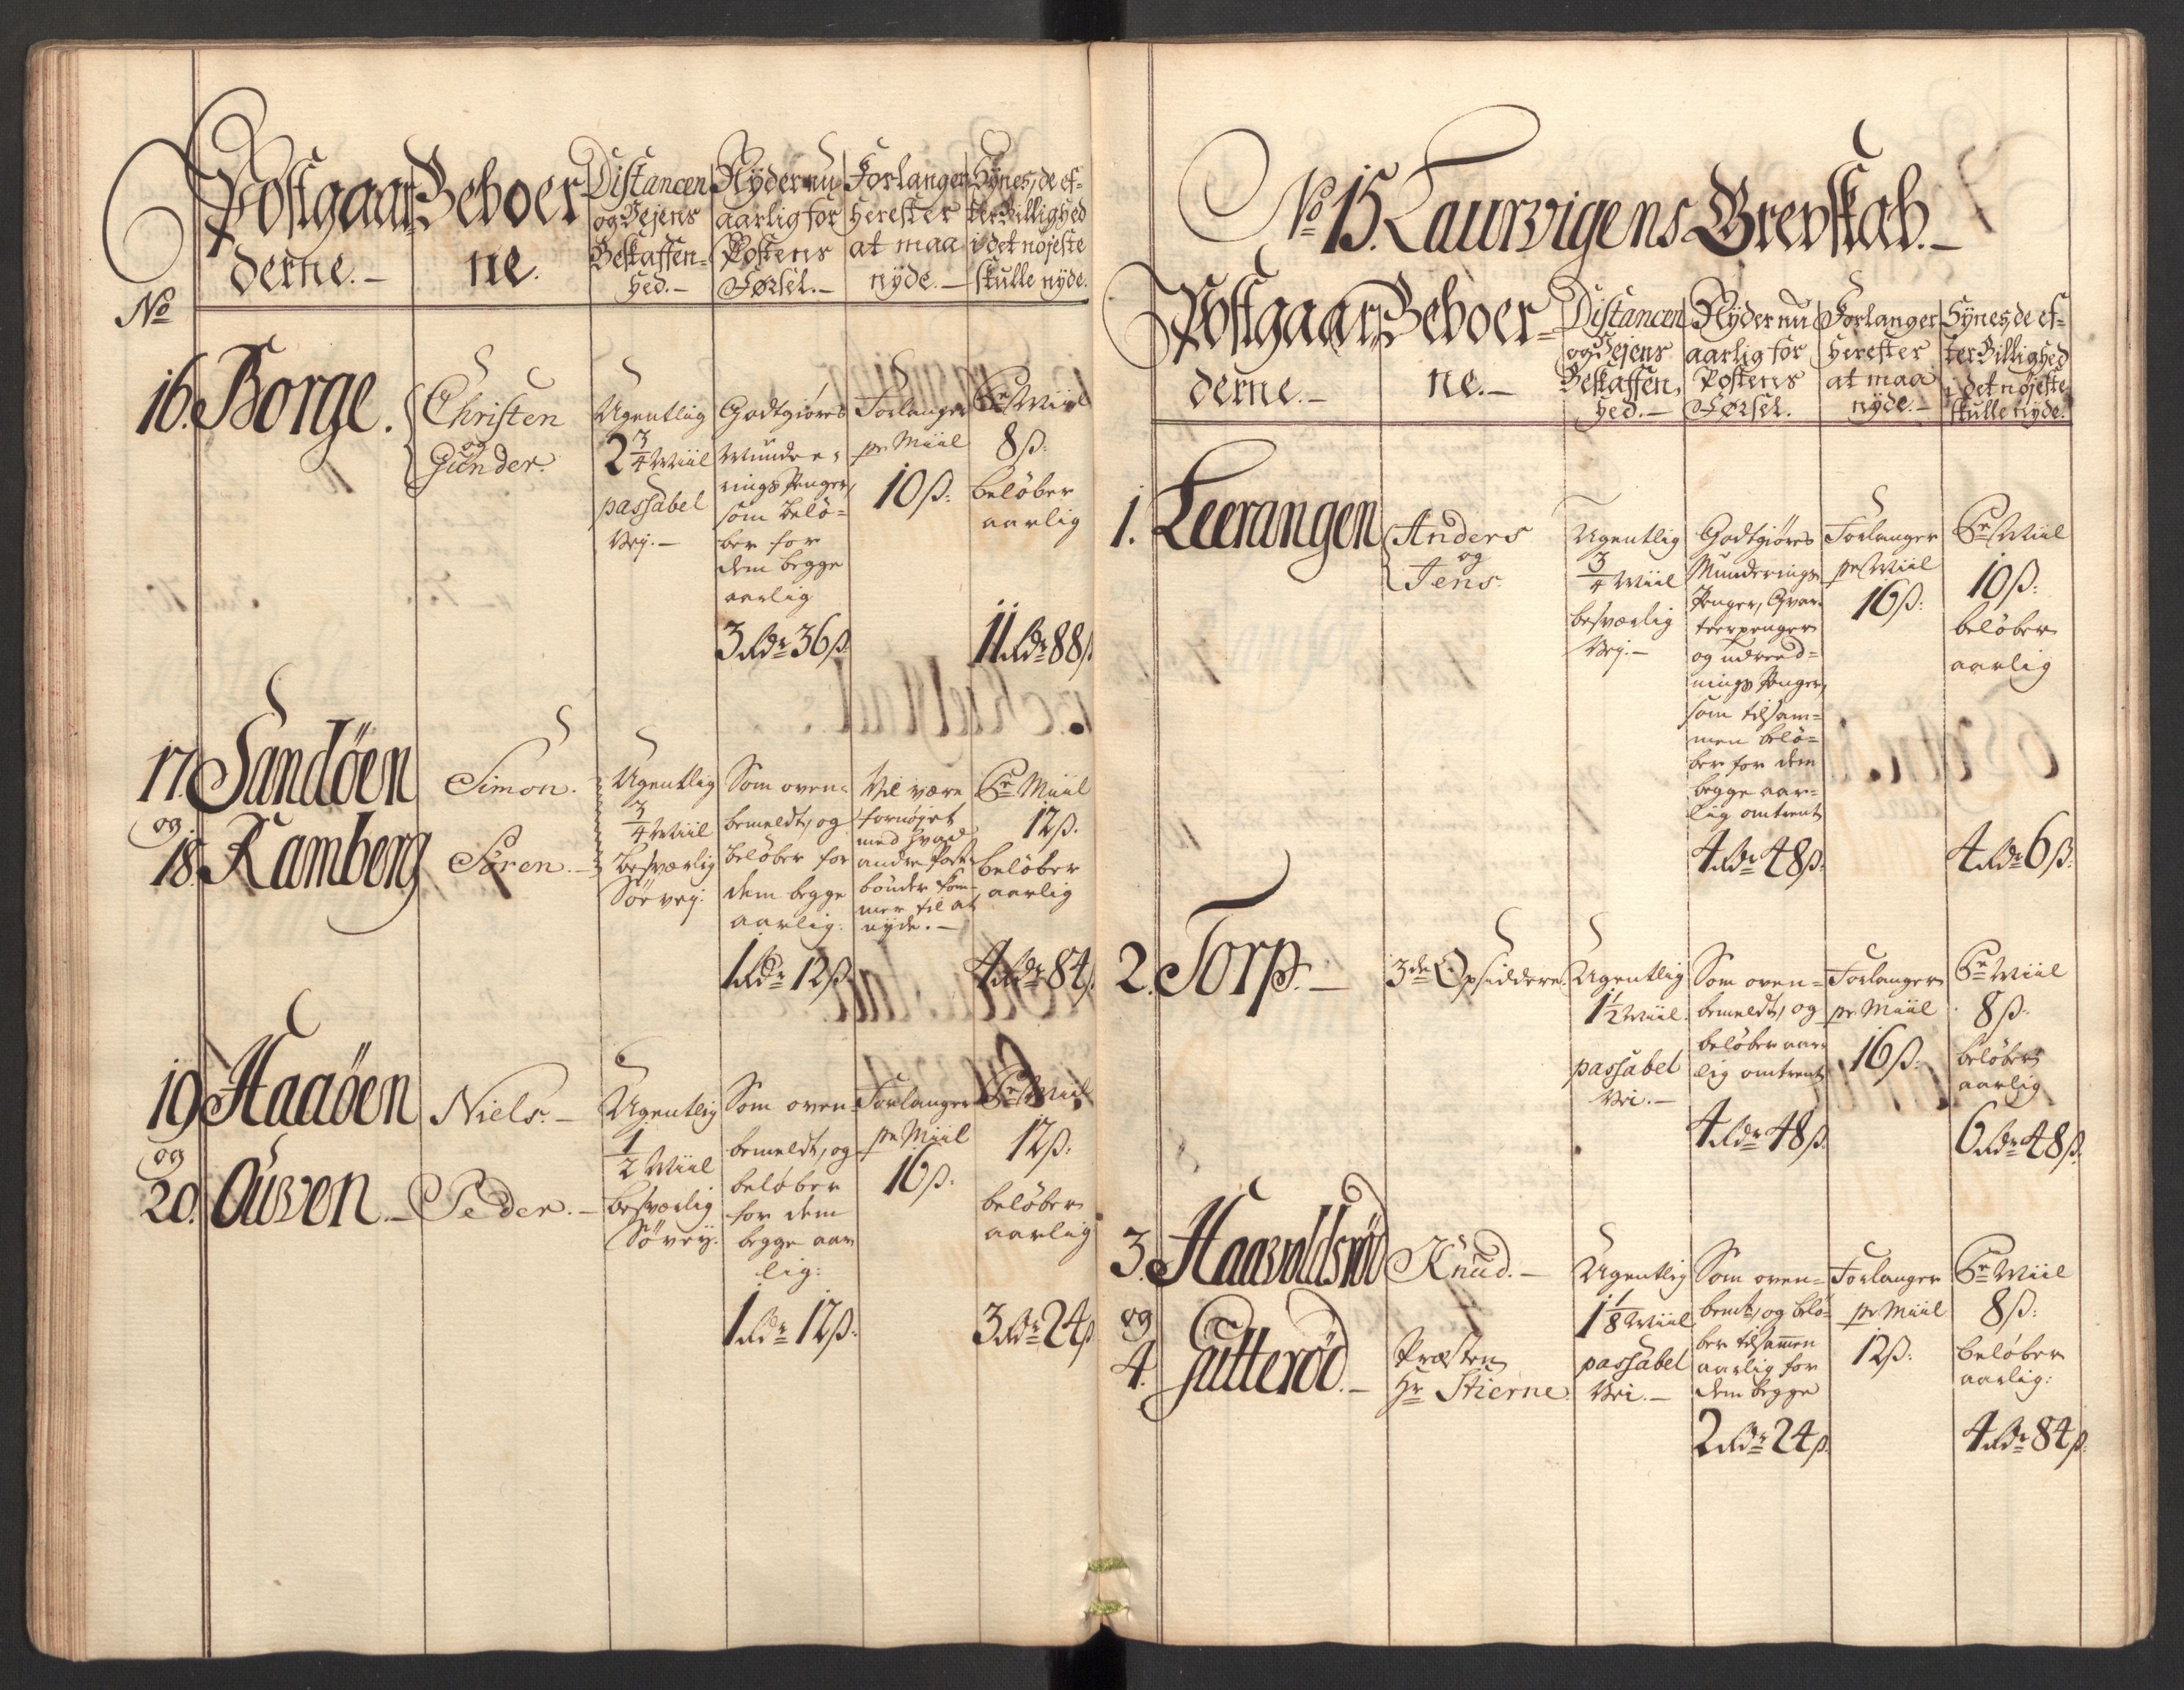 Postgaar- Beboer- Distancen Nyder nu Forlanger Synes, de ef-
og Vejens aarlig for herefter ter Billighed
derne.- ne. Beskaffen- Postens at maa i det nøjeste
hed.- Førsel.- nyde.- skulle nyde.
No
16. Borge. Christen
og
Gunder.
Ugentlig
2 3/4 Miil
passabel
Vej.-
Godtgiøres
Munde-
rings Penger,
som belø-
ber for
dem begge
aarlig
3 Rdr 36 ß.
Forlanger
pr Miil
10 ß:
Pr Miil
8 ß:
beløber
aarlig
11 Rdr 88 ß
17. Sandøen Simon.
og
18. Kamberg Søren.-
Ugentlig
3/4 Miil
besværlig
Søevej.
Som oven-
bemeldt, og
beløber for
dem begge
aarlig:
1 Rdr 12 ß.
Vil være
fornøjet
med hvad
andre Post-
bønder kom-
mer til at
nyde.-
Pr Miil
12 ß.
beløber
aarlig
4 Rdr 84 ß
19. Haaøen Niels.-
og
20. Ousven.- Peder.-
Ugentlig
1/2 Miil
besværlig
Søvej.
Som oven-
bemeldt, og
beløber
for dem
begge aar-
lig:
1 Rdr 12 ß.
Forlanger
pr Miil
16 ß.
Pr Miil
12 ß.
beløber
aarlig
3 Rdr 24 ß
No 15. Laurvigens Grevskab.-
Postgaar- Beboer- Distancen Nyder nu Forlanger Synes, de ef-
og Vejens aarlig for herefter ter Billighed
derne.- ne.- Beskaffen- Postens at maa i det nøjeste
hed.- Førsel. nyde.- skulle nyde.
1. Leerangen Anders
og
Jens
Ugentlig
3/4 Miil
besværlig
Vej.-
Godtgiøres
Munderings
Penger, Qvar-
teerpenger
og udreed-
nings Penger,
som tilsam-
men belø-
ber for dem
begge aar-
lig omtrent
4 Rdr 48 ß.
Forlanger
pr Miil
16 ß:
Pr Miil
10 ß:
beløber
aarlig
4 Rdr 6 ß.
2. Torp.- 3de Opsiddere.
Ugentlig
1 1/2 Miil.
passabel
Vei.-
Som oven-
bemeldt, og
beløber aar-
lig omtrent
4 Rdr 48 ß.
Forlanger
pr Miil
16 ß:
Pr Miil
8 ß.
beløber
aarlig
6 Rdr 48 ß.
3. Haavoldsrød Knud.-
og
4. Gutterød.- Præsten
Hr Stierne.
Ugentlig
1 1/8 Miil
passabel
Vei.-
Som oven-
bemt, og belø-
ber tilsammen
aarlig for
dem begge
2 Rdr 24 ß.
Forlanger
pr Miil
12 ß:
Pr Miil
8 ß:
beløber
aarlig:
4 Rdr 84 ß.